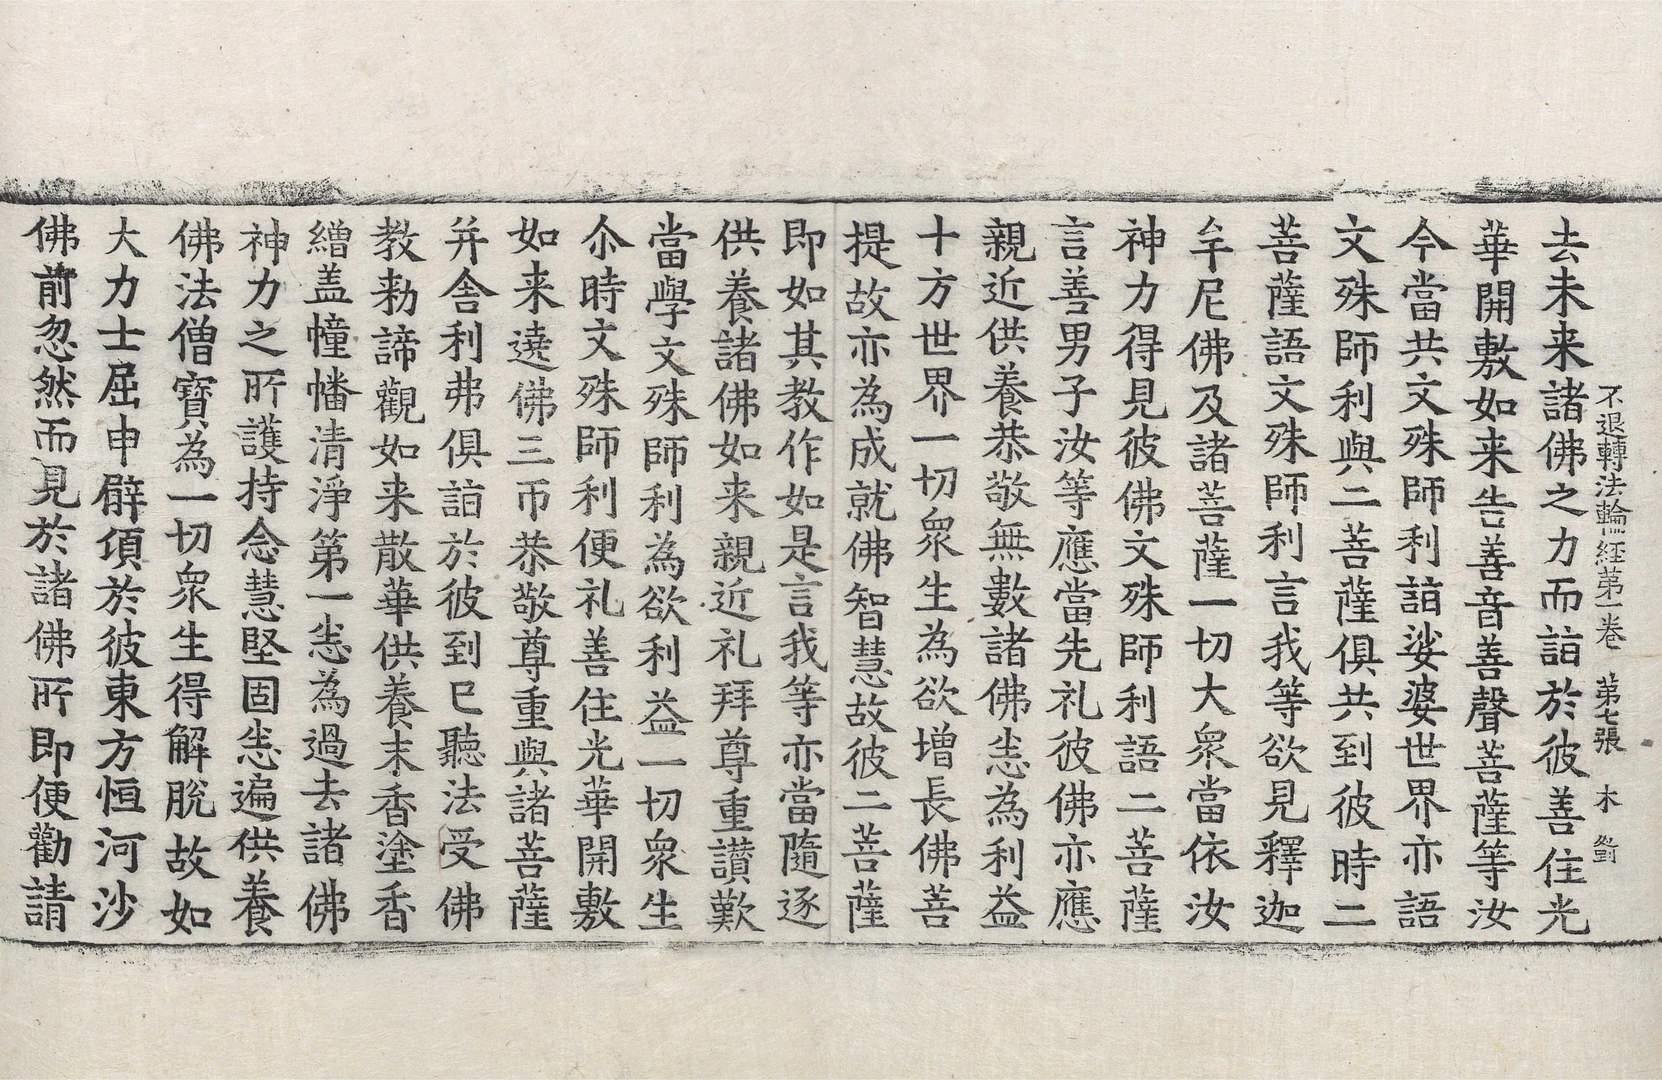 不退轉法輪經第一卷 第七張 木
去未来諸佛之力而詣於彼善住光
華開敷如来告善音善聲菩薩等汝
今當共文殊師利詣娑婆世界亦語
文殊師利與二菩薩俱共到彼時二
菩薩語文殊師利言我等欲見釋迦
牟尼佛及諸菩薩一切大衆當依汝
神力得見彼佛文殊師利語二菩薩
言善男子汝等應當先礼彼佛亦應
親近供養恭敬無數諸佛㤙為利益
十方世界一切衆生為欲增長佛菩
提故亦為成就佛智慧故彼二菩薩
即如其教作如是言我等亦當隨逐
供養諸佛如来親近礼拜尊重讃歎
當學文殊師利為欲利益一切衆生
尒時文殊師利便礼善住光華開敷
如来遶佛三帀恭敬尊重與諸菩薩
并舎利弗俱詣於彼到已聽法受佛
教勑諦觀如来散華供養末香塗香
繒盖幢幡清淨第一㤙為過去諸佛
神力之所護持念慧堅固㤙遍供養
佛法僧寶為一切衆生得解脫故如
大力士屈申臂頃於彼東方恒河沙
佛前忽然而見於諸佛所即便勸請